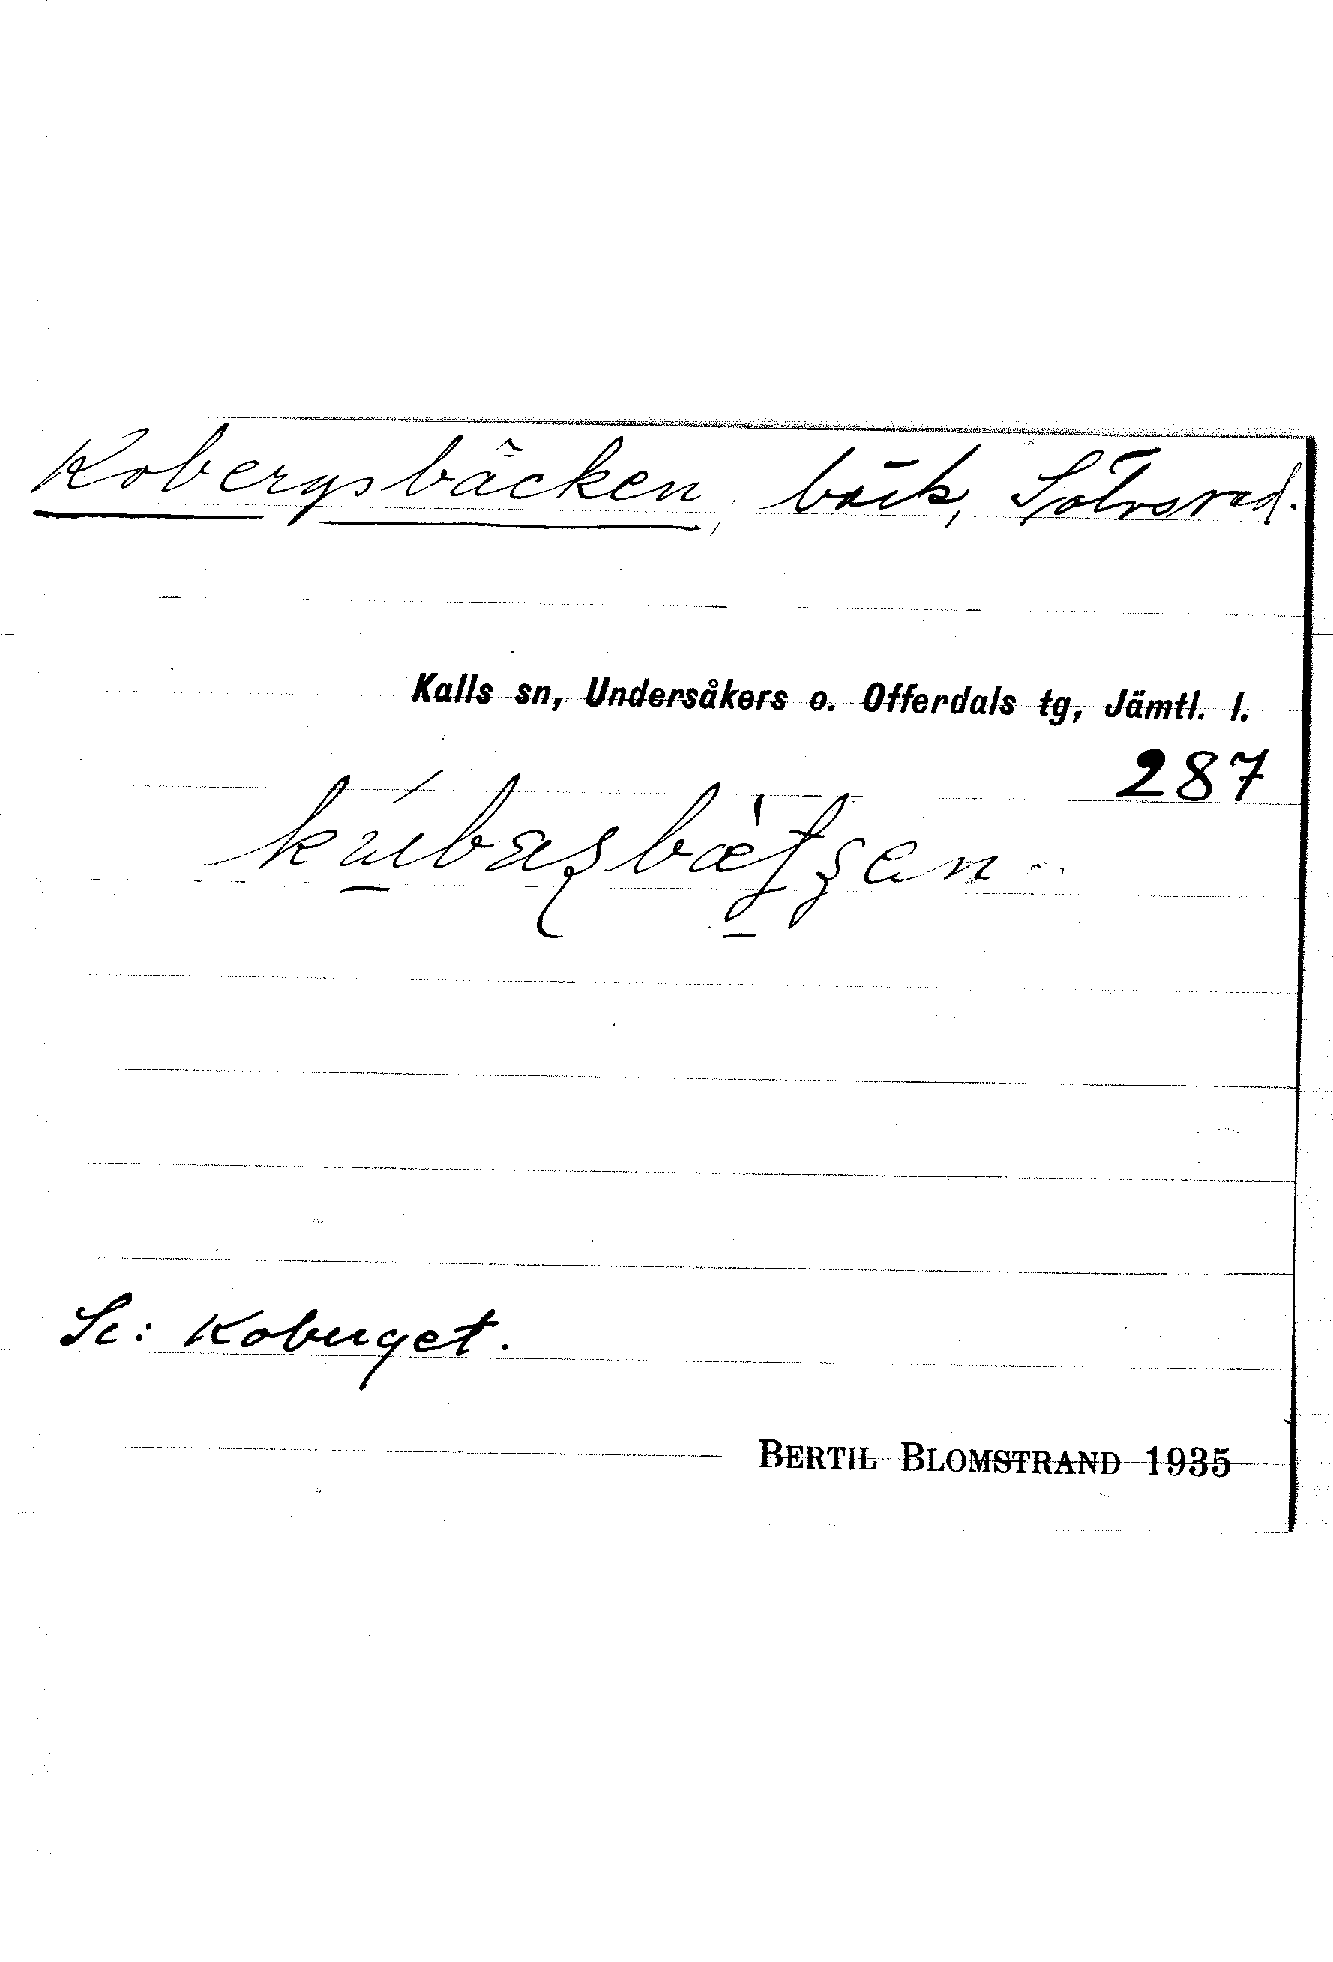 Kobergsbäcken, bäck, Sölvsved.
Kalls sn, Undersåkers o. Offerdals tg, Jämtl. l.
287
Se: Koberget.
BERTIL BLOMSTRAND 1935